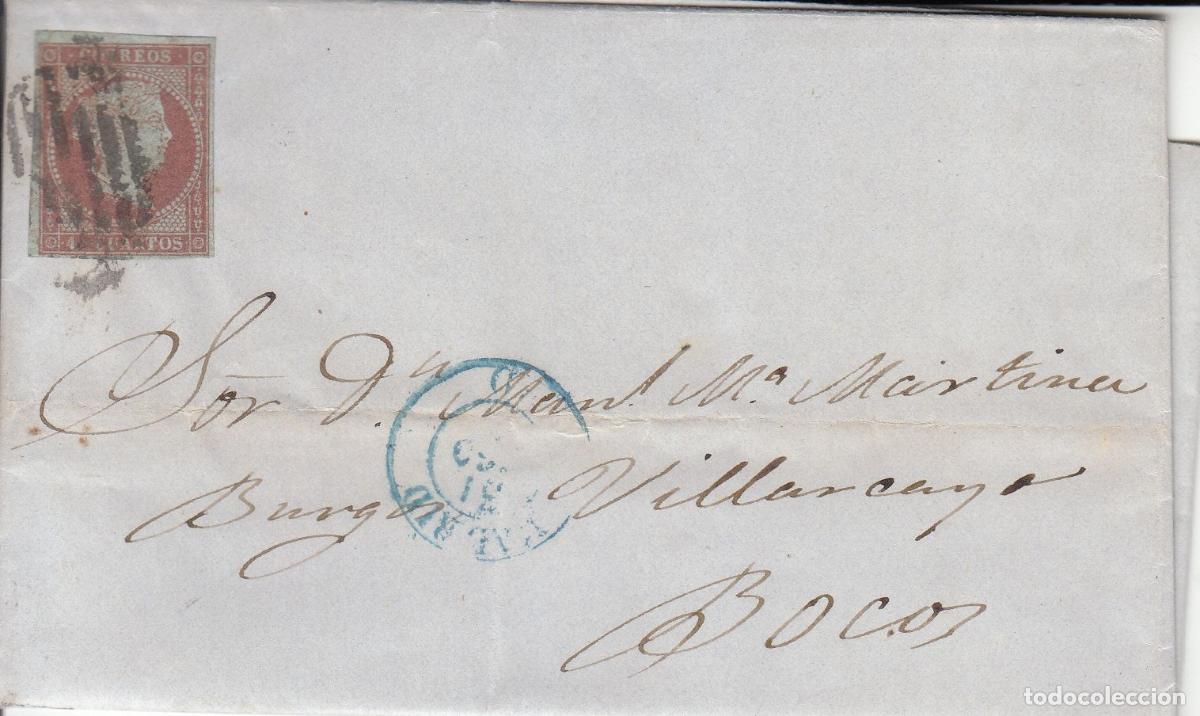 CORREOS
4 CUARTOS
Sor. Dn. Manl. Ma. Martinez
Burgos Villarcayo
Bocos
todocoleccion